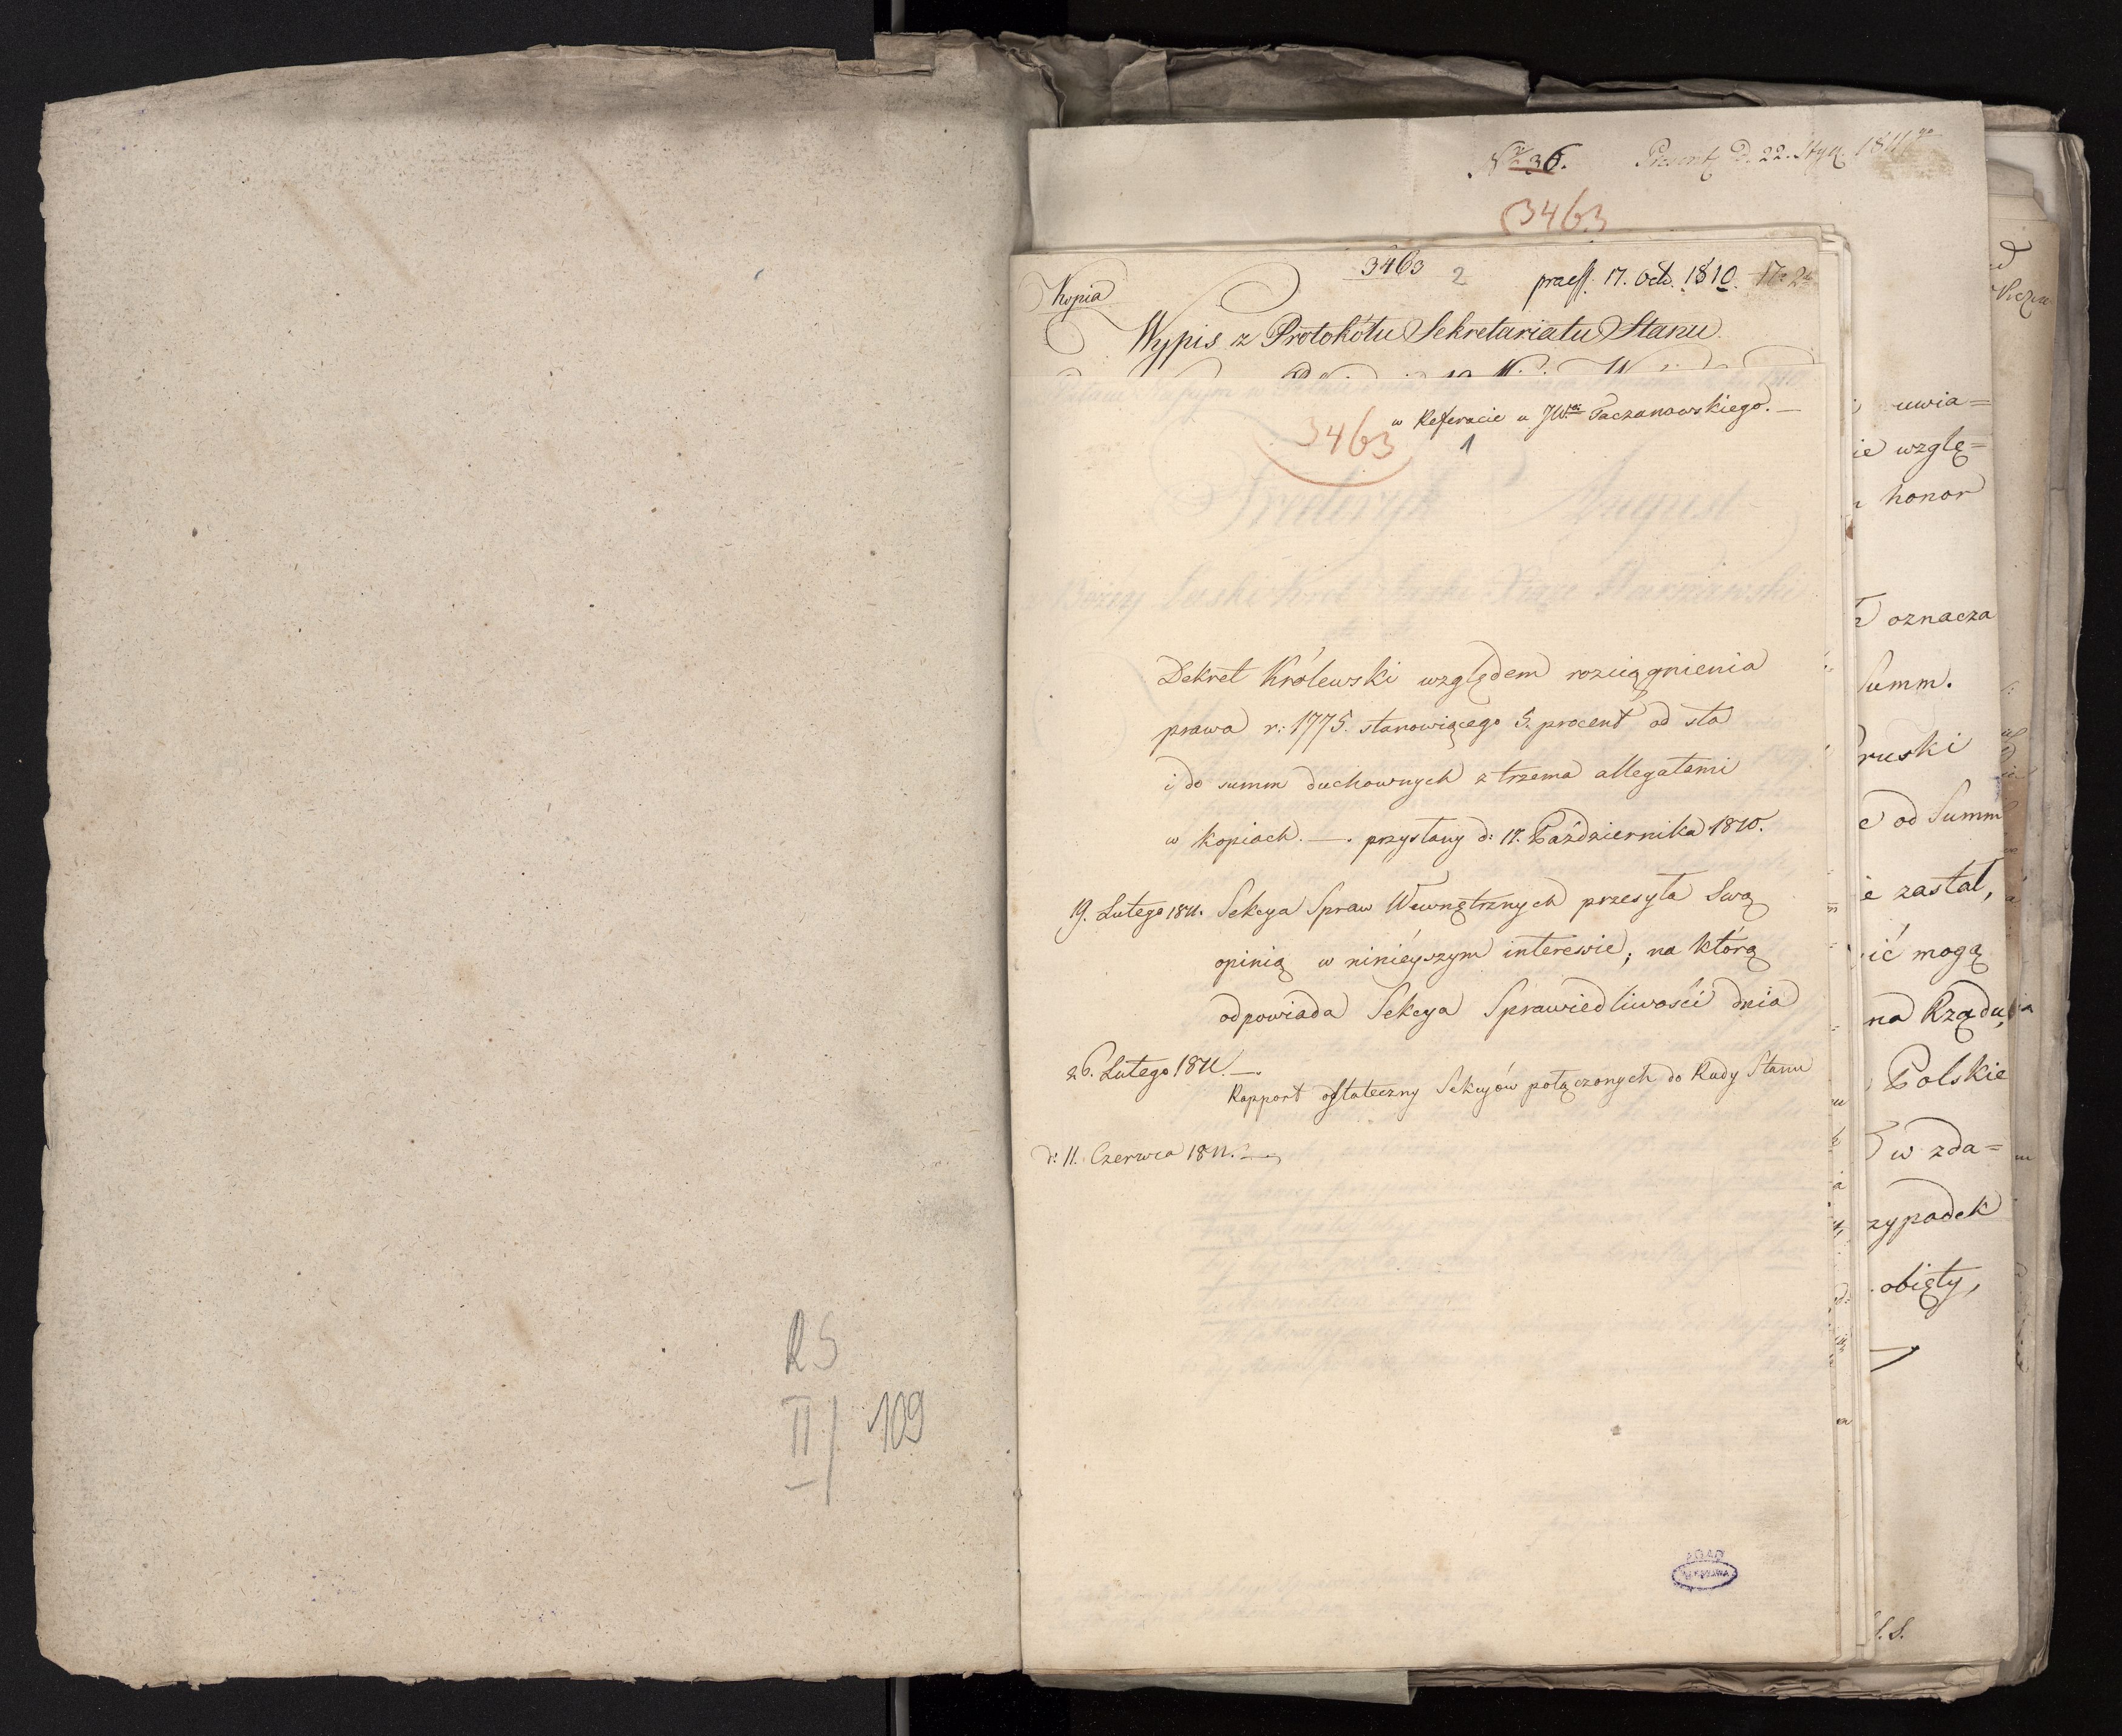 Nr 36. Prezent. D. 22. Stycz. 1811go
3463
3463 2 praess. 17. Octb. 1810.
Kopia
Wypis z Protokółu Sekretariatu Stanu
w Referacie u JW. Taczanowskiego. —
3463 1
Fryderyk August
Dekret Królewski względem rozciągnienia
prawa r: 1775. stanowiącego 5. procent od sta
i do summ duchownych z trzema allegatami
w kopiach. —. przysłany d: 17. Października 1810.
19. Lutego 1811. Sekcya Spraw Wewnętrznych przesyła Swą
opinią w ninieyszym interesie, na którą
odpowiada Sekcya Sprawiedliwości dnia
26. Lutego 1811. —.
Rapport ostateczny Sekcyów połączonych do Rady Stanu
d: 11. Czerwca 1811. —
uwia=
ie wzglę=
honor
oznacza
Summ.
ruski
e od Summ
ie zastał,
ić mogą
na Rządu,
Polskie
w zda=
zypadek
obięty,
S.S.
RS
II/ 109
AGAD
WARSZAWA